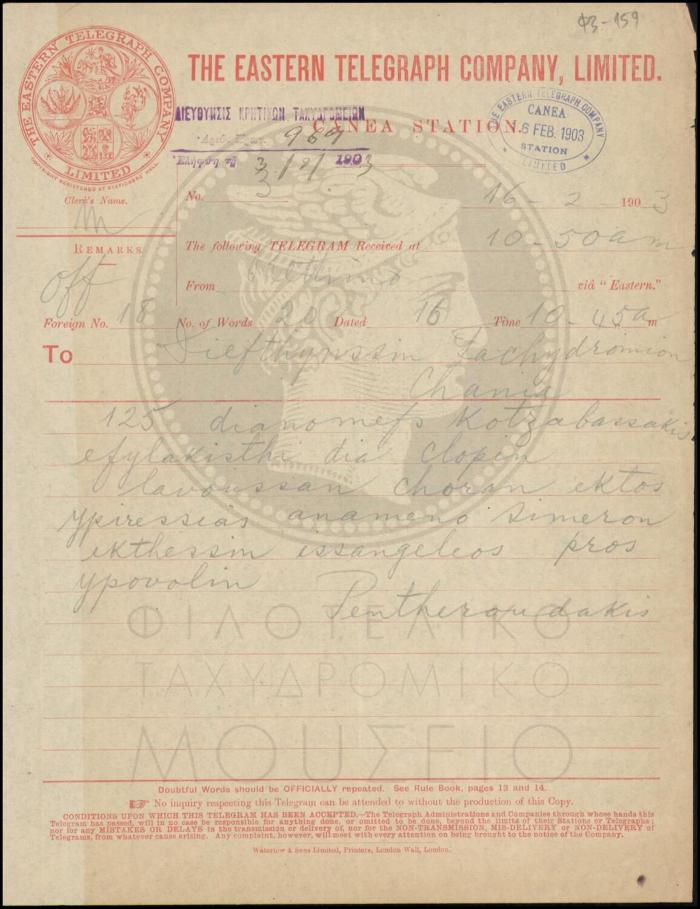 ΦΞ-159
THE EASTERN TELEGRAPH COMPANY
LIMITED
COPYRIGHT REGISTERED AT STATIONERS' HALL
THE EASTERN TELEGRAPH COMPANY, LIMITED.
ΔΙΕΥΘΥΝΣΙΣ ΚΡΗΤΙΚΩΝ ΤΑΧΥΔΡΟΜΕΙΩΝ
969
CANEA STATION.
Ἐλήφθη τῇ 3/2/1903
THE EASTERN TELEGRAPH COMPANY
CANEA
6 FEB. 1903
STATION
LIMITED
Clerk's Name.
No.
16 - 2 - 1903
REMARKS
The following TELEGRAM Received at 10-50am
off
From Rethimo viâ "Eastern."
Foreign No. 18 No. of Words 20 Dated 16 Time 10-45a m
To Diefthynssin Tachydromion
Chania
125 dianomefs Kotzabassakis
efylakisthi dia clopin
lavoussan choran ektos
ypiressias anameno simeron
ekthessin issangeleos pros
ypovolin Pentheroudakis
ΦΙΛΟΤΕΛΙΚΟ
ΤΑΧΥΔΡΟΜΙΚΟ
ΜΟΥΣΕΙΟ
Doubtful Words should be OFFICIALLY repeated. See Rule Book, pages 13 and 14.
☞ No inquiry respecting this Telegram can be attended to without the production of this Copy.
CONDITIONS UPON WHICH THIS TELEGRAM HAS BEEN ACCEPTED.—The Telegraph Administrations and Companies through whose hands this
Telegram has passed, will in no case be responsible for anything done, or omitted to be done, beyond the limits of their Stations or Telegraphs;
nor for any MISTAKES OR DELAYS in the transmission or delivery of, nor for the NON-TRANSMISSION, MIS-DELIVERY or NON-DELIVERY of
Telegrams, from whatever cause arising. Any complaint, however, will meet with every attention on being brought to the notice of the Company.
Waterlow & Sons Limited, Printers, London Wall, London.